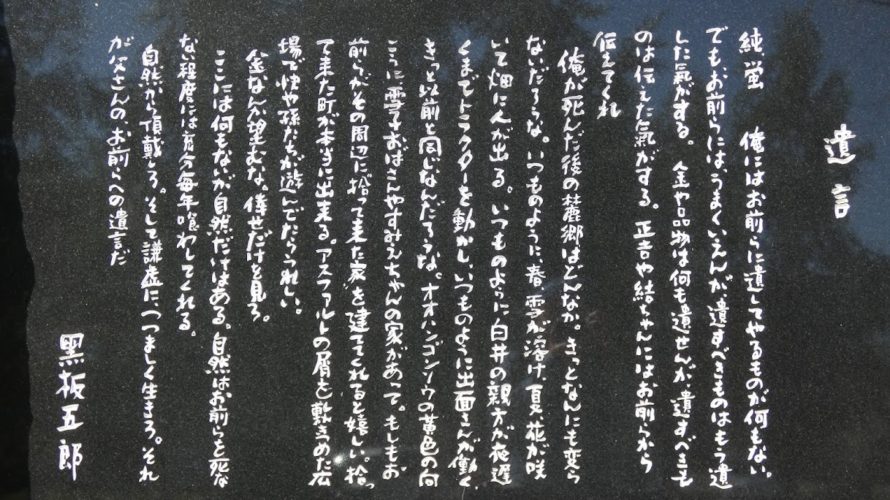 遺言
純 蛍　俺にはお前らに遺してやるものが何もない。
でも、お前らには、うまくいえんが遺すべきものはもう遺
した気がする。金や品物は何も遺せんが、遺すべきも
のは伝えた氣がする。正吉や結ちゃんにはお前らから
伝えてくれ
俺が死んだ後の麓郷はどんなか。きっとなんにも変ら
ないだろうな。いつものように、春、雪が溶け夏、花が咲
いて畑に人が出る。いつものように白井の親方が夜遅
くまでトラクターを動かし、いつものように出面さんが働く。
きっと以前と同じなんだろうな。オオハンゴンソウの黄色の向
こうに雪子おばさんやすみえちゃんの家があって。もしもお
前らがその周辺に“拾って来た家”を建ててくれると嬉しい。拾っ
て来た町が本当に出来る。アスファルトの屑を敷きつめた広
場で快や孫たちが遊んでたらうれしい。
金なんか望むな。倖せだけを見ろ。
ここには何もないが自然だけはある。自然はお前らを死な
ない程度には充分毎年喰わしてくれる。
自然から頂戴しろ。そして謙虚に、つつましく生きろ。それ
が父さんの、お前らへの遺言だ
黒板五郎